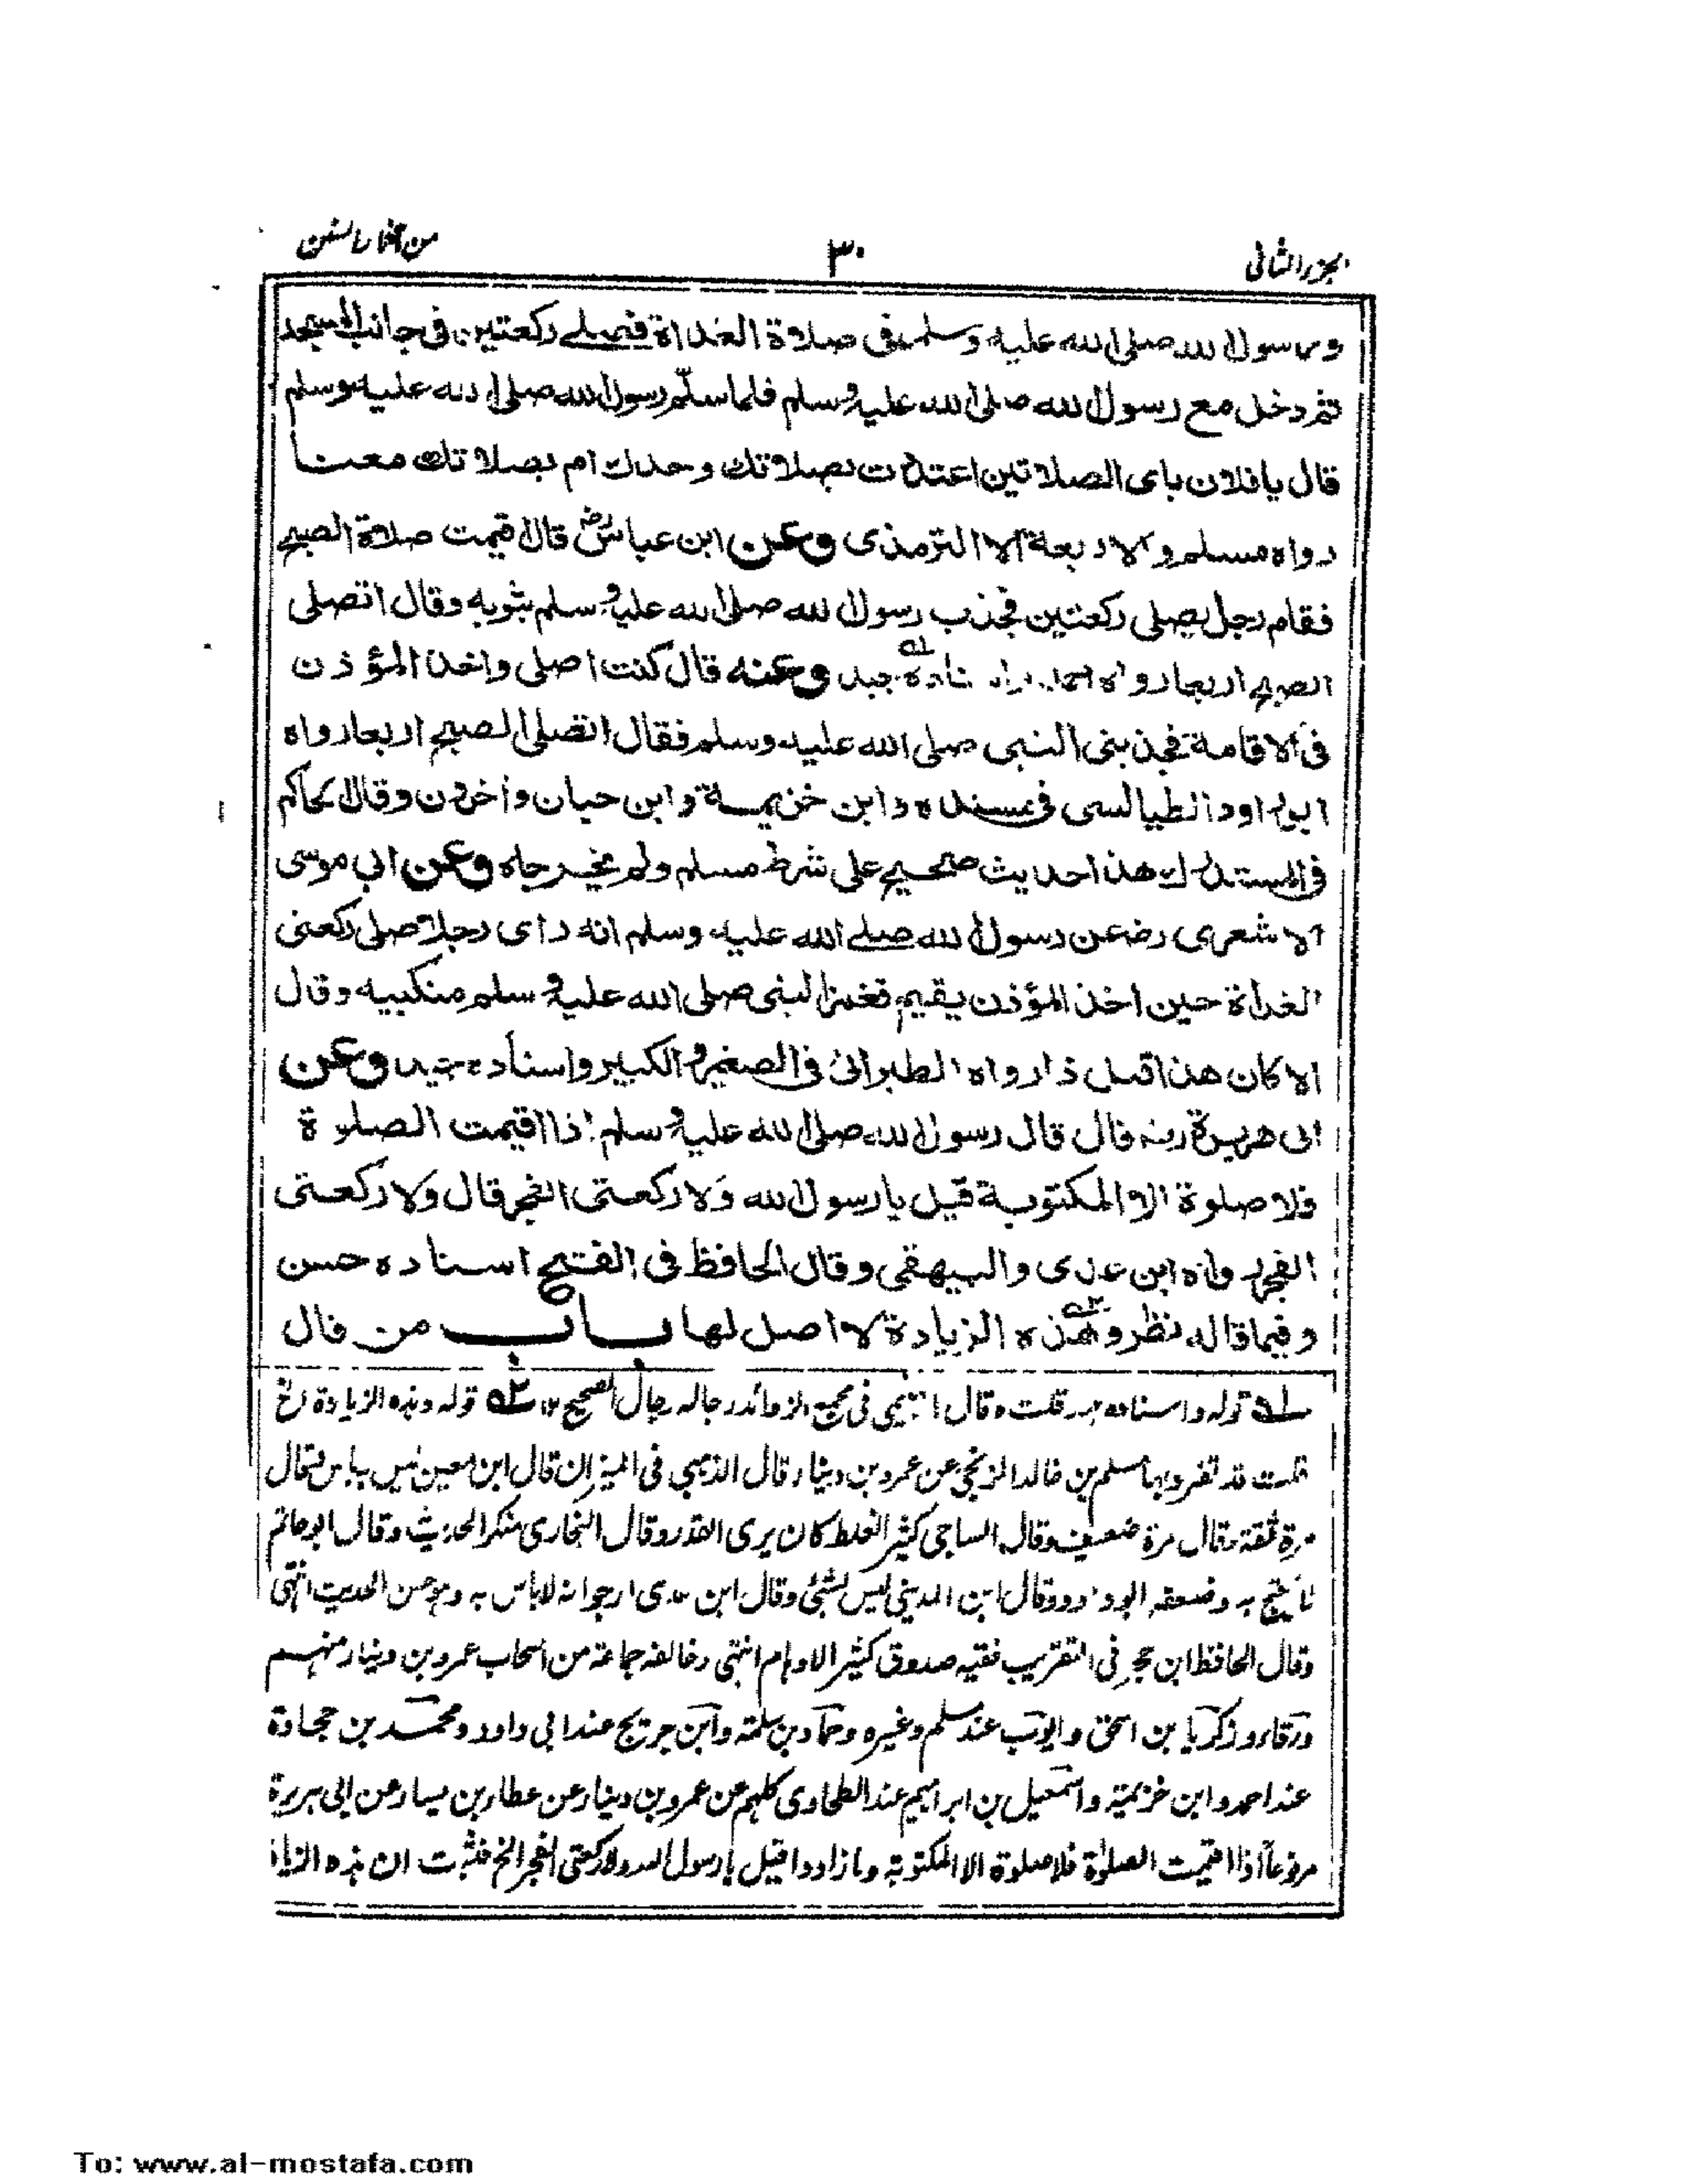 الجزء الثانی ٣٠ من آثار السنن
ورسول الله صلی الله علیه وسلم فی صلاة الغداة فصلے رکعتین فی جانب المسجد
ثم دخل مع رسول الله صلی الله علیه وسلم فلما سلّم رسول الله صلی الله علیه وسلم
قال یا فلان بای الصلاتین اعتددت بصلاتك وحدك ام بصلاتك معنا
رواه مسلم والاربعة الا الترمذی وعن ابن عباس رض قال اقیمت صلاة الصبح
فقام رجل یصلی رکعتین فجذب رسول الله صلی الله علیه وسلم بثوبه وقال اتصلی
الصبح اربعا رواه احمد واسناده جید وعنه قال کنت اصلی واخذ المؤذن
فی الاقامة فجذبنی النبی صلی الله علیه وسلم فقال اتصلی الصبح اربعا رواه
ابوداود الطیالسی فی مسنده وابن خزیمة وابن حبان وآخرون وقال الحاکم
فی المستدرك هذا حدیث صحیح علی شرط مسلم ولم یخرجاه وعن ابی موسی
الاشعری رض عن رسول الله صلے الله علیه وسلم انه رای رجلا صلی رکعتی
الغداة حین اخذ المؤذن یقیم فغمز النبی صلی الله علیه وسلم منکبیه وقال
الا کان هذا قبل ذا رواه الطبرانی فی الصغیر والکبیر واسناده جید وعن
ابی هریرة رض قال قال رسول الله صلی الله علیه وسلم اذا اقیمت الصلوة
فلا صلوة الا المکتوبة قیل یا رسول الله وَلا رکعتی الفجر قال وَلا رکعتی
الفجر رواه ابن عدی والبیهقی وقال الحافظ فی الفتح اسناده حسن
وفیما قاله نظر وهذه الزیادة لا اصل لها باب من قال
١ــه قوله واسناده جید قلت وقال الهیثمی فی مجمع الزوائد رجاله رجال الصحیح ١٢ ٢ــه قوله وهذه الزیادة الخ
قلت قد تفرد بها مسلم بن خالد الزنجی عن عمرو بن دینار قال الذهبی فی المیزان قال ابن معین لیس به باس وقال
مرة ثقة وقال مرة ضعیف وقال الساجی کثیر الغلط کان یری القدر وقال البخاری منکر الحدیث وقال ابوحاتم
لا یحتج به وضعفه ابوداود وقال ابن المدینی لیس بشیٔ وقال ابن عدی ارجو انه لاباس به وهو حسن الحدیث انتهی
وقال الحافظ ابن حجر فی التقریب فقیه صدوق کثیر الاوهام انتهی وخالفه جماعة من اصحاب عمرو بن دینار منهم
ورقاء وزکریا بن اسحٰق وایوب عند مسلم وغیره وحماد بن سلمة وابن جریج عند ابی داود ومحمد بن جحادة
عند احمد وابن خزیمة واسمٰعیل بن ابراهیم عند الطحاوی کلهم عن عمرو بن دینار عن عطاء بن یسار عن ابی هریرة
مرفوعاً اذا اقیمت الصلوٰة فلا صلوة الا المکتوبة وما زادوا قیل یا رسول الله ولا رکعتی الفجر الخ فثبت ان هذه الزیادة
To: www.al-mostafa.com